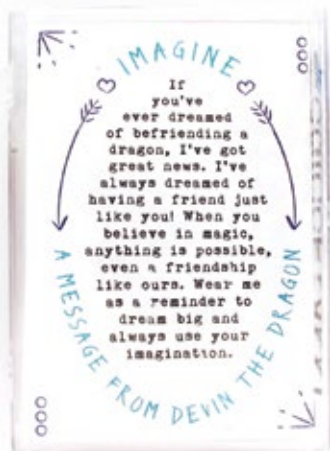 IMAGINE
If
you've
ever dreamed
of befriending a
dragon, I've got
great news. I've
always dreamed of
having a friend just
like you! When you
believe in magic,
anything is possible,
even a friendship
like ours. Wear me
as a reminder to
dream big and
always use your
imagination.
A MESSAGE FROM DEVIN THE DRAGON